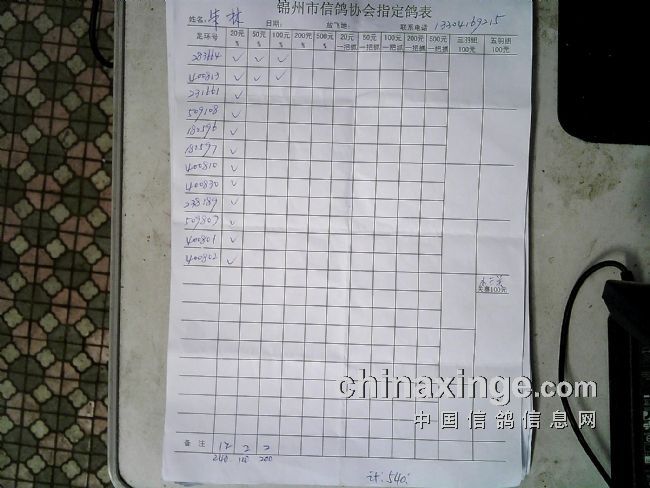 锦州市信鸽协会指定鸽表
姓名: 朱林 日期: 放飞地: 联系电话 13304169215
足环号 20元% 50元% 100元% 200元% 500元% 20元一把抓 50元一把抓 100元一把抓 200元一把抓 500元一把抓 三羽组100元 五羽组100元
283664 ✓ ✓ ✓
400813 ✓ ✓ ✓
231661 ✓
509108 ✓
182596 ✓
182597 ✓
400810 ✓
400830 ✓
238189 ✓
509803 ✓
400801 ✓
400802 ✓
天赛100元
备 注 12 2 2
240 100 200
计: 540
chinaxinge.com
中国信鸽信息网